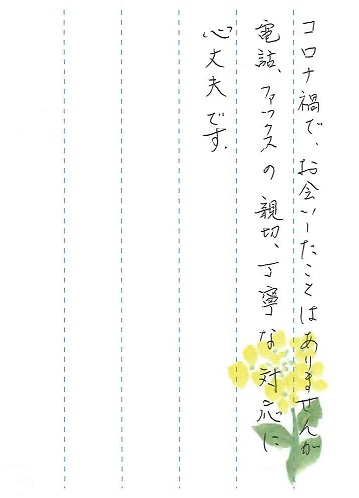 コロナ禍で、お会いしたことはありませんが
電話、ファックスの親切、丁寧な対応に
心丈夫です.